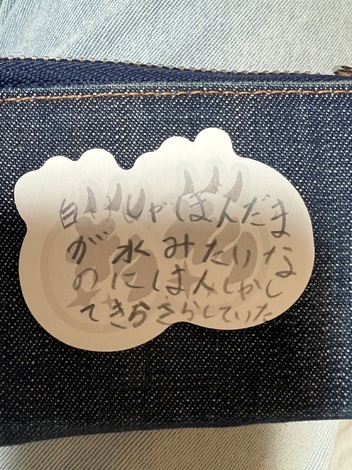 白いしゃぼんだま
が水みたいな
のにはんしゃし
てきらきらしていた